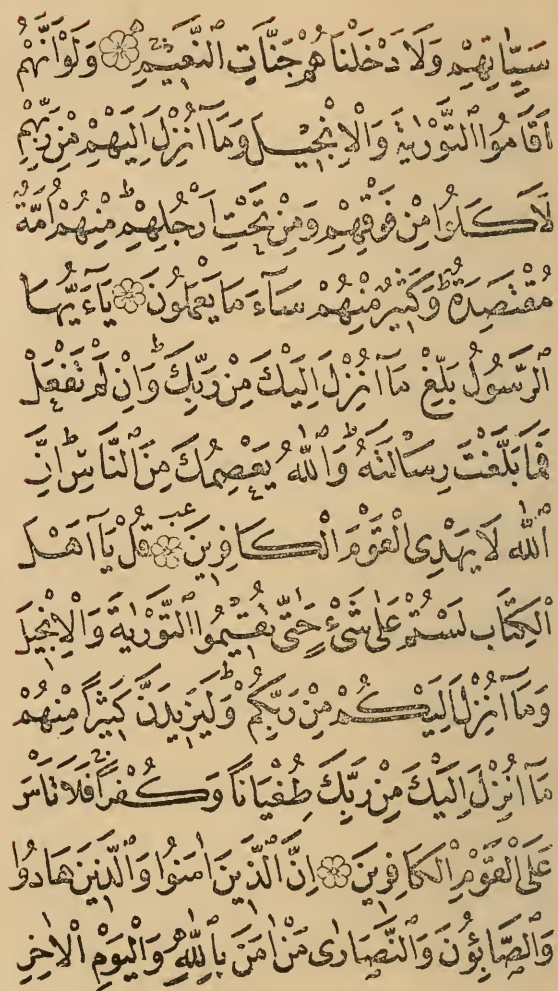 سَيِّاٰتِهِمْ وَلَاَدْخَلْنَاهُمْ جَنَّاتِ ٱلنَّعِيمِ ۞ وَلَوْ اَنَّهُمْ
اَقَامُوا ٱلتَّوْرٰيةَ وَٱلْاِنْجِيلَ وَمَآ اُنْزِلَ اِلَيْهِمْ مِنْ رَبِّهِمْ
لَاَكَلُوا مِنْ فَوْقِهِمْ وَمِنْ تَحْتِ اَرْجُلِهِمْ ط مِنْهُمْ اُمَّةٌ
مُقْتَصِدَةٌ ط وَكَثِيرٌ مِنْهُمْ سَآءَ مَا يَعْمَلُونَ ۞ يَآءَيُّهَا
ٱلرَّسُولُ بَلِّغْ مَآ اُنْزِلَ اِلَيْكَ مِنْ رَبِّكَ ط وَاِنْ لَمْ تَفْعَلْ
فَمَا بَلَّغْتَ رِسَالَتَهُ ط وَٱللّٰهُ يَعْصِمُكَ مِنَ ٱلنَّاسِ ط اِنَّ
ٱللّٰهَ لَا يَهْدِى ٱلْقَوْمَ ٱلْكَافِرِينَ ۞ قُلْ يَآ اَهْلَ
ٱلْكِتَابِ لَسْتُمْ عَلٰى شَىْءٍ حَتّٰى تُقِيمُوا ٱلتَّوْرٰيةَ وَٱلْاِنْجِيلَ
وَمَآ اُنْزِلَ اِلَيْكُمْ مِنْ رَبِّكُمْ ط وَلَيَزِيدَنَّ كَثِيرًا مِنْهُمْ
مَآ اُنْزِلَ اِلَيْكَ مِنْ رَبِّكَ طُغْيَانًا وَكُفْرًا فَلَا تَاْسَ
عَلَى ٱلْقَوْمِ ٱلْكَافِرِينَ ۞ اِنَّ ٱلَّذِينَ اٰمَنُوا وَٱلَّذِينَ هَادُوا
وَٱلصَّابِئُونَ وَٱلنَّصَارٰى مَنْ اٰمَنَ بِٱللّٰهِ وَٱلْيَوْمِ ٱلْاٰخِرِ